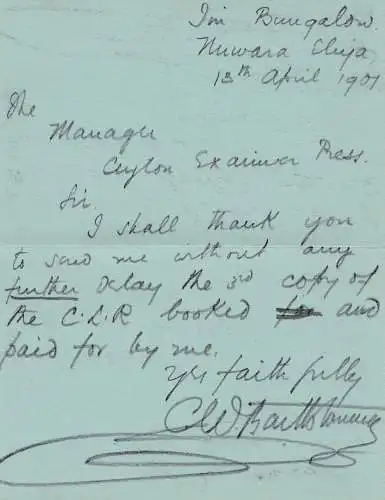 Bungalow.
Nuwara Eliya
13th April 1901
The
Manager
Ceylon Examiner Press.
Sir.
I shall thank you
to send me without any
further delay the 3rd copy of
the C.L.R booked for and
paid for by me.
Yrs faithfully